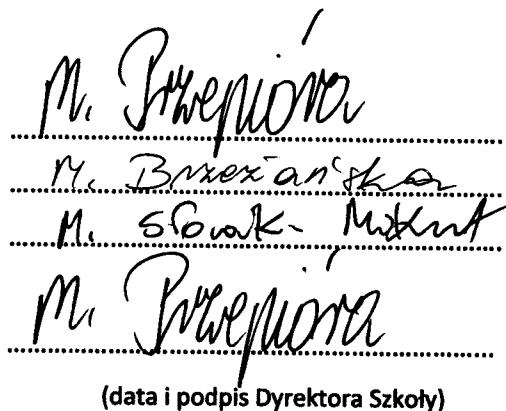 M. Przepióra
M. Brzeziańska
M. Słowik-
M. Przepióra
(data i podpis Dyrektora Szkoły)